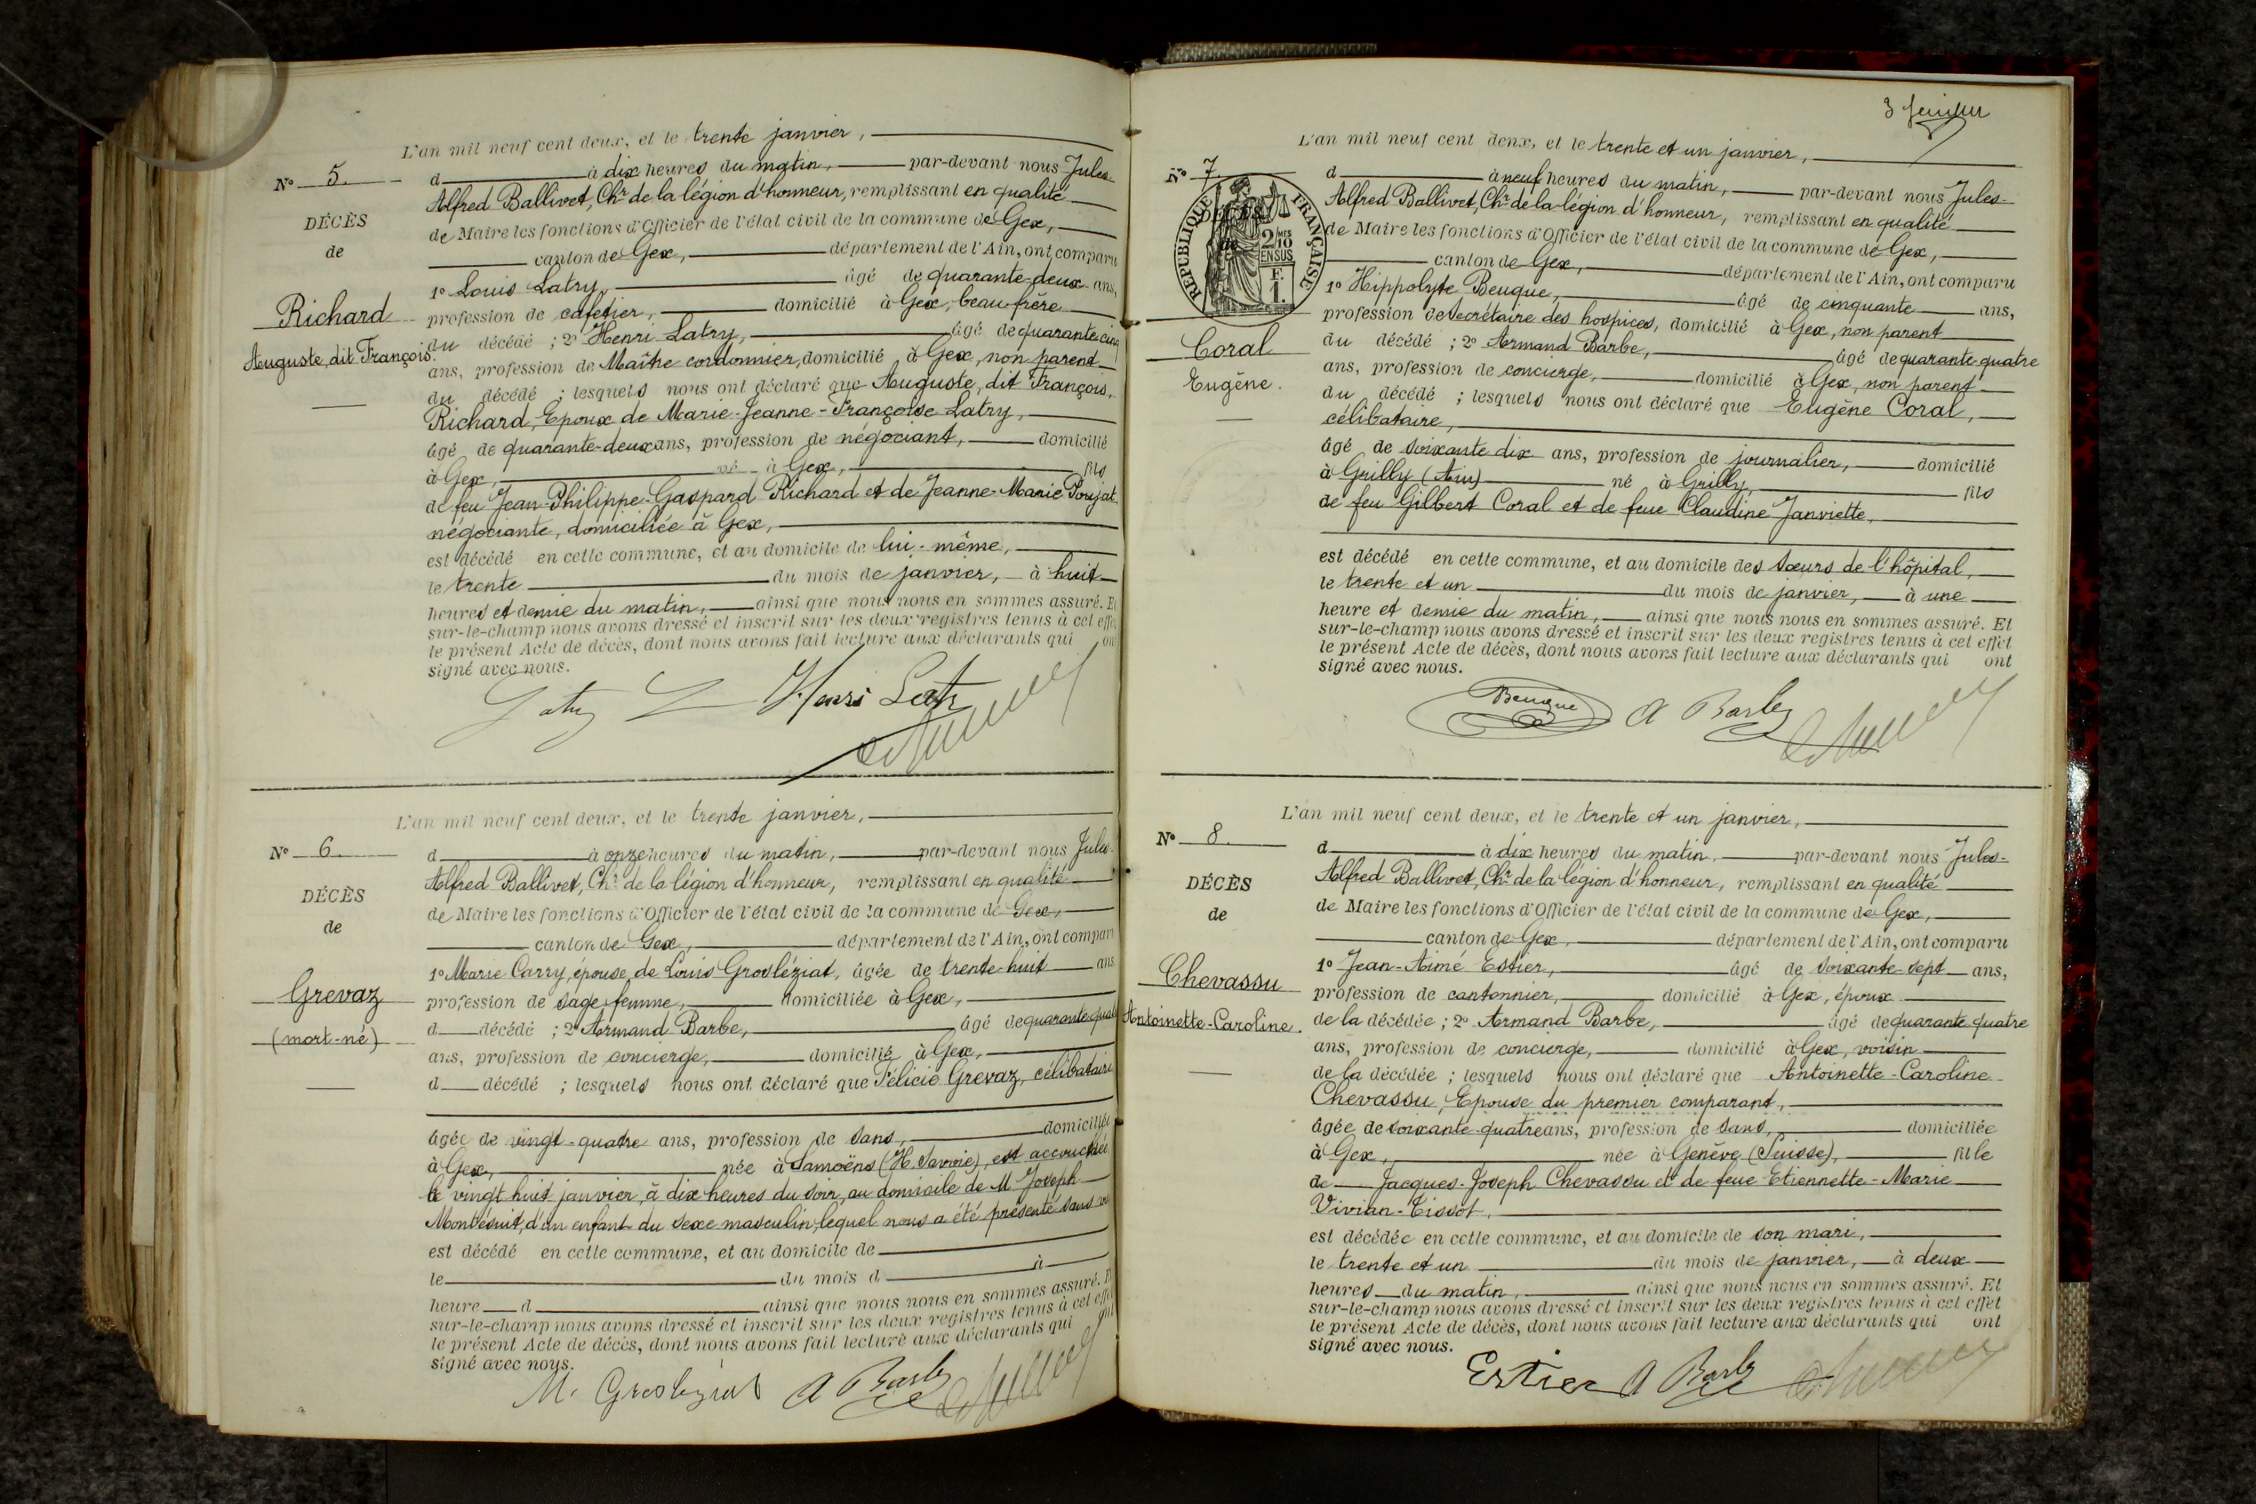 L'an mil neuf cent deux, et le trente janvier,
N° 5.
d à dix heures du matin, par-devant nous Jules-
Alfred Ballivet, Chr de la légion d'honneur, remplissant en qualité
DÉCÈS
de Maire les fonctions d'Officier de l'état civil de la commune de Gex,
de
canton de Gex, département de l'Ain, ont comparu
1° Louis Latry, âgé de quarante-deux ans,
Richard
profession de cafetier, domicilié à Gex, beau-frère
du décédé ; 2° Henri Latry, âgé de quarante-cinq
Auguste, dit François.
ans, profession de Maître cordonnier, domicilié à Gex, non parent
du décédé ; lesquels nous ont déclaré que Auguste, dit François,
Richard, Epoux de Marie-Jeanne-Françoise Latry,
âgé de quarante-deux ans, profession de négociant, domicilié
à Gex, né à Gex, fils
de feu Jean-Philippe-Gaspard Richard et de Jeanne-Marie Poujat
négociante, domiciliée à Gex,
est décédé en cette commune, et au domicile de lui-même,
le trente du mois de janvier, à huit
heures et demie du matin, ainsi que nous nous en sommes assuré. Et
sur-le-champ nous avons dressé et inscrit sur les deux registres tenus à cet effet
le présent Acte de décès, dont nous avons fait lecture aux déclarants qui ont
signé avec nous.
Latry Henri Latry
L'an mil neuf cent deux, et le trente janvier,
N° 6.
d à onze heures du matin, par-devant nous Jules-
Alfred Ballivet, Chr de la légion d'honneur, remplissant en qualité
DÉCÈS
de Maire les fonctions d'Officier de l'état civil de la commune de Gex,
de
canton de Gex, département de l'Ain, ont comparu
1° Marie Carry, épouse de Louis Grosléziat, âgée de trente-huit ans
Grevaz
profession de sage-femme, domiciliée à Gex,
d décédé ; 2° Armand Barbe, âgé de quarante-quatre
(mort-né)
ans, profession de concierge, domicilié à Gex,
d décédé ; lesquels nous ont déclaré que Félicie Grevaz, célibataire
âgée de vingt-quatre ans, profession de sans, domiciliée
à Gex, née à Samoëns (H. Savoie), est accouchée
le vingt huit janvier, à dix heures du soir, au domicile de M. Joseph
Montésuit, d'un enfant du sexe masculin, lequel nous a été présenté sans vie
est décédé en cette commune, et au domicile de
le du mois d à
heure d ainsi que nous nous en sommes assuré. Et
sur-le-champ nous avons dressé et inscrit sur les deux registres tenus à cet effet
le présent Acte de décès, dont nous avons fait lecture aux déclarants qui ont
signé avec nous.
M. Grosleziat A Barbe
3
L'an mil neuf cent deux, et le trente et un janvier,
N° 7.
d à neuf heures du matin, par-devant nous Jules-
Alfred Ballivet, Chr de la légion d'honneur, remplissant en qualité
RÉPUBLIQUE FRANÇAISE
2 MES
10
EN SUS
F.
1.
DÉCÈS
de
de Maire les fonctions d'Officier de l'état civil de la commune de Gex,
canton de Gex, département de l'Ain, ont comparu
1° Hippolyte Beuque, âgé de cinquante ans,
profession de secrétaire des hospices, domicilié à Gex, non parent
Coral
du décédé ; 2° Armand Barbe, âgé de quarante-quatre
ans, profession de concierge, domicilié à Gex, non parent
Eugène.
du décédé ; lesquels nous ont déclaré que Eugène Coral,
célibataire,
âgé de soixante dix ans, profession de journalier, domicilié
à Grilly (Ain) né à Grilly, fils
de feu Gilbert Coral et de feue Claudine Janviette,
est décédé en cette commune, et au domicile des sœurs de l'hôpital,
le trente et un du mois de janvier, à une
heure et demie du matin, ainsi que nous nous en sommes assuré. Et
sur-le-champ nous avons dressé et inscrit sur les deux registres tenus à cet effet
le présent Acte de décès, dont nous avons fait lecture aux déclarants qui ont
signé avec nous.
Beuque A Barbe
L'an mil neuf cent deux, et le trente et un janvier,
N° 8.
d à dix heures du matin, par-devant nous Jules-
Alfred Ballivet, Chr de la légion d'honneur, remplissant en qualité
DÉCÈS
de Maire les fonctions d'Officier de l'état civil de la commune de Gex,
de
canton de Gex, département de l'Ain, ont comparu
1° Jean-Aimé Estier, âgé de soixante-sept ans,
Chevassu
profession de cantonnier, domicilié à Gex, époux
Antoinette-Caroline.
de la décédée ; 2° Armand Barbe, âgé de quarante-quatre
ans, profession de concierge, domicilié à Gex, voisin
de la décédée ; lesquels nous ont déclaré que Antoinette-Caroline-
Chevassu, Epouse du premier comparant,
âgée de soixante-quatre ans, profession de sans, domiciliée
à Gex, née à Genève (Suisse), fille
de Jacques-Joseph Chevassu et de feue Etiennette-Marie
Vivian-Tissot,
est décédée en cette commune, et au domicile de son mari,
le trente et un du mois de janvier, à deux
heures du matin, ainsi que nous nous en sommes assuré. Et
sur-le-champ nous avons dressé et inscrit sur les deux registres tenus à cet effet
le présent Acte de décès, dont nous avons fait lecture aux déclarants qui ont
signé avec nous.
Estier A Barbe